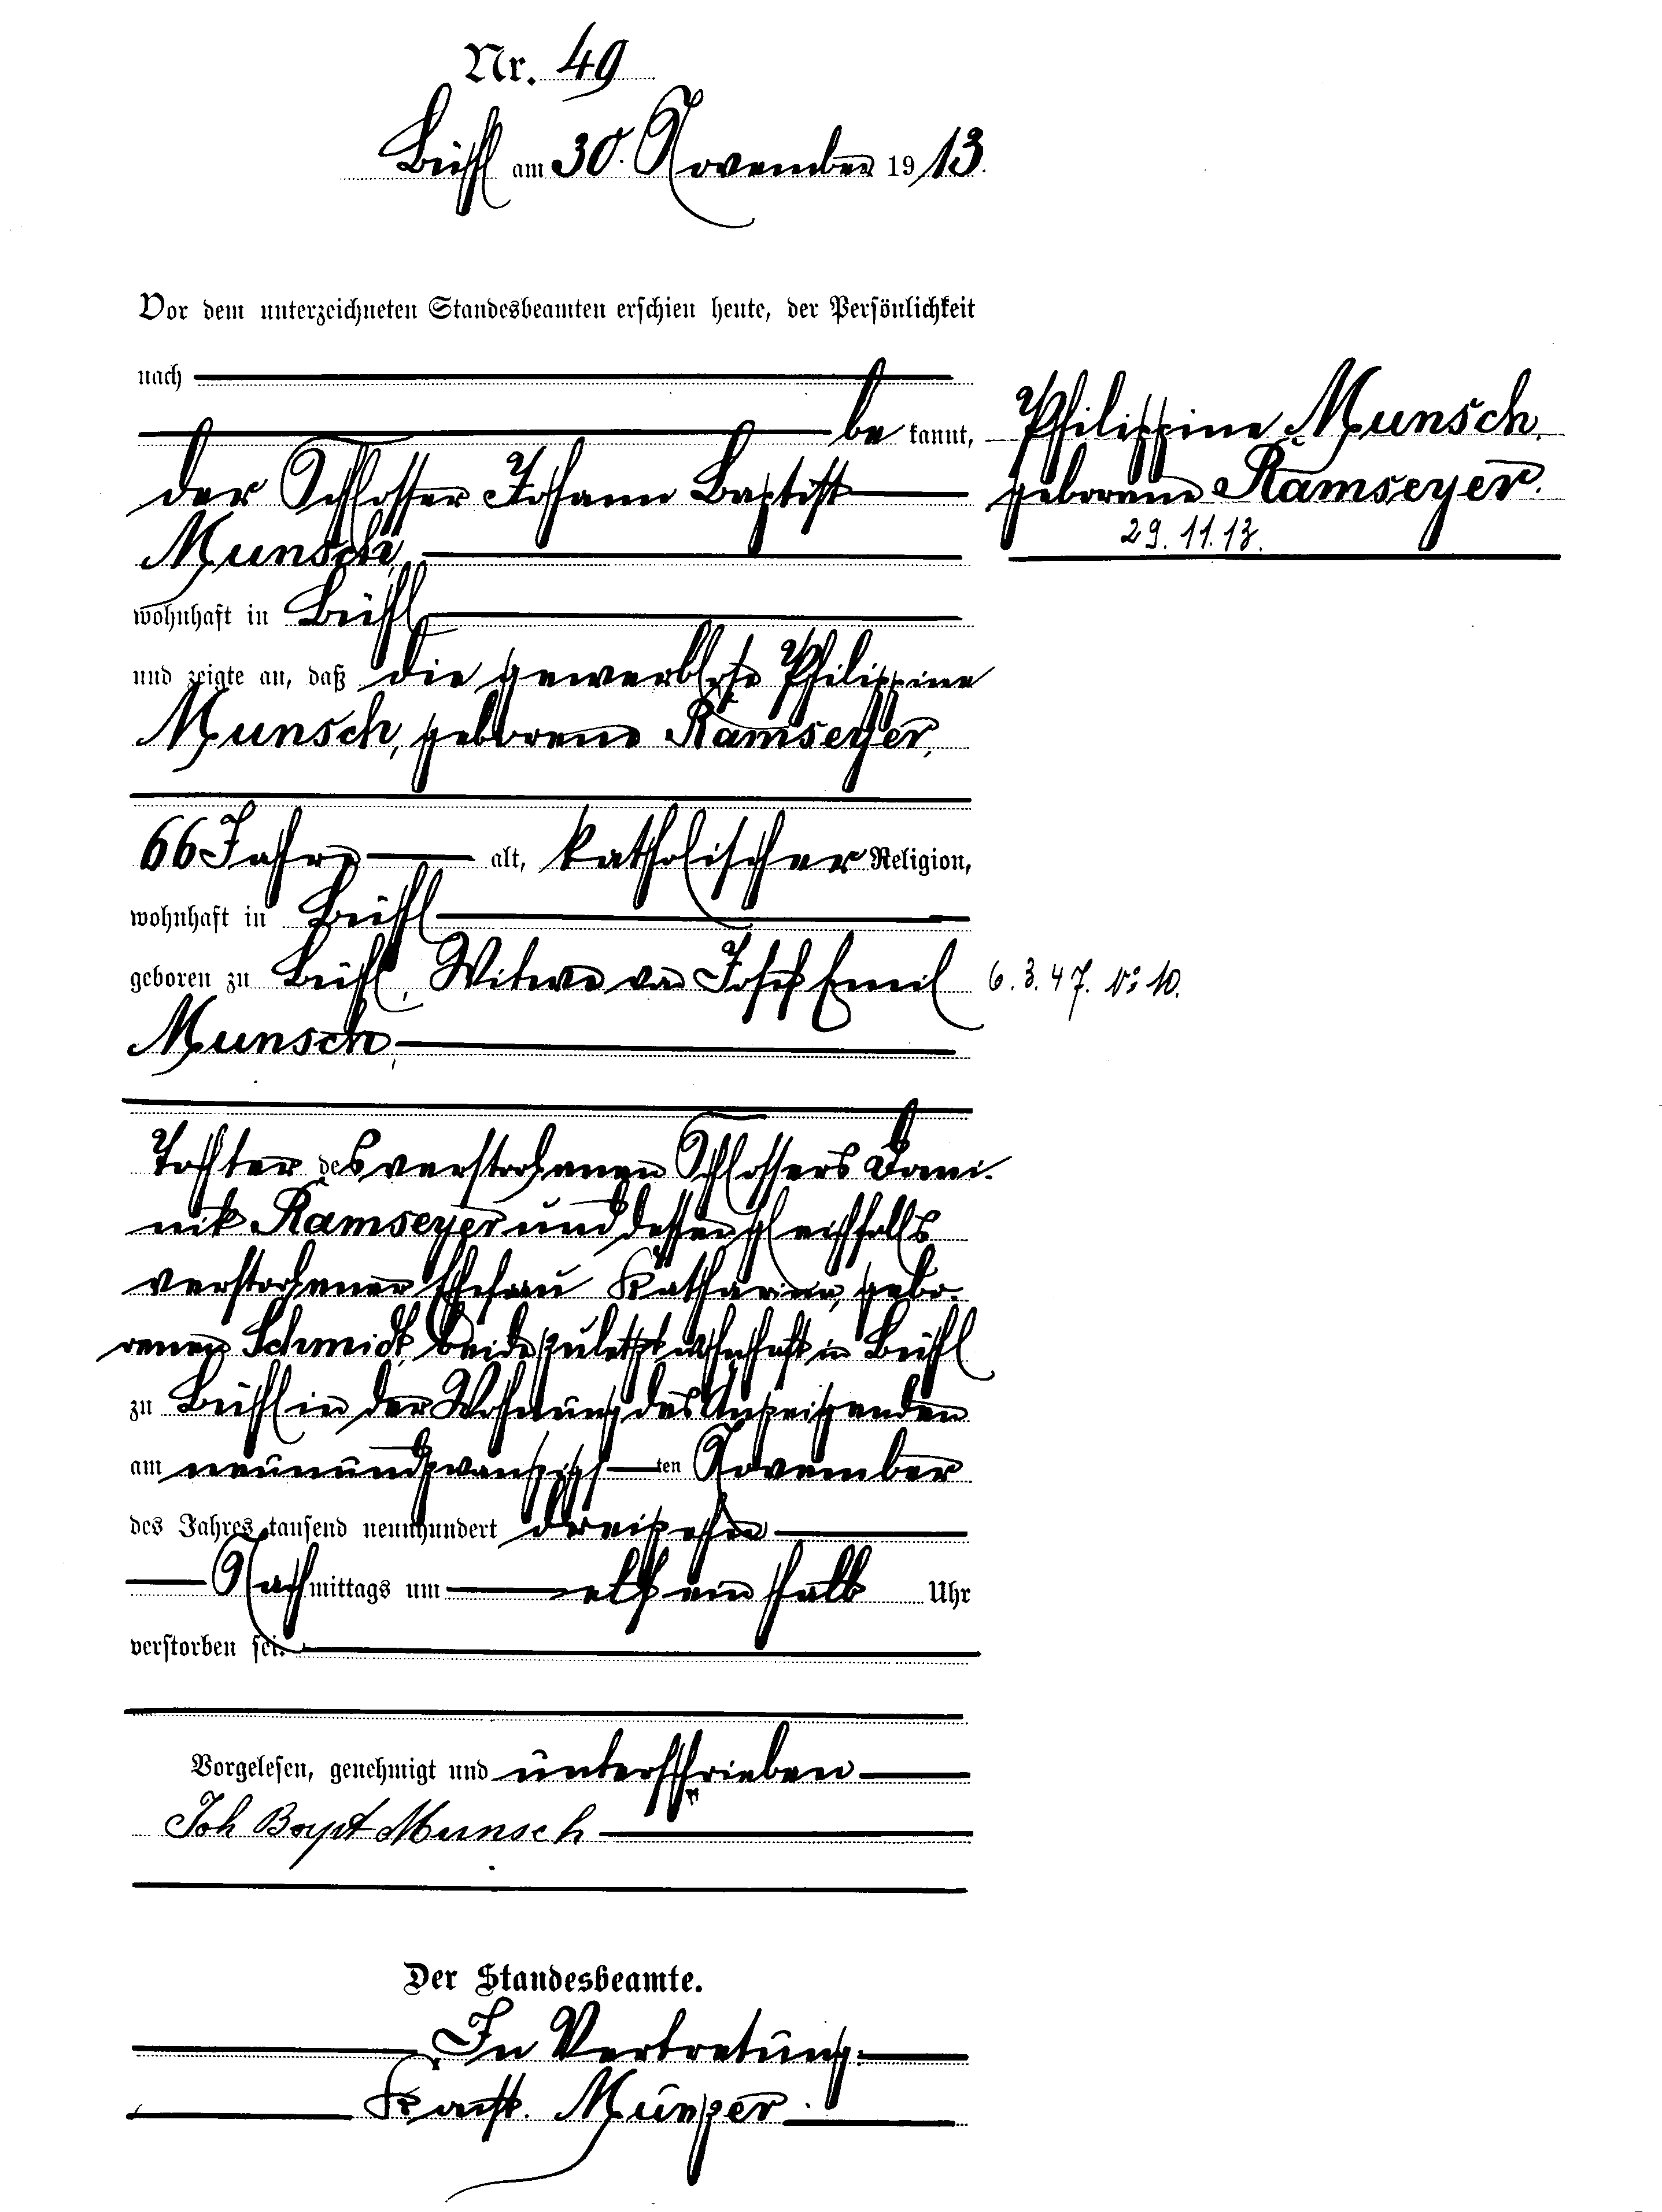 Nr. 49
Bühl am 30. November 1913.
Vor dem unterzeichneten Standesbeamten erschien heute, der Persönlichkeit
nach
be kannt,
der Schlosser Johann Baptist
Munsch,
wohnhaft in Bühl
und zeigte an, daß die gewerblose Philippine
Munsch, geborene Ramseyer,
66 Jahre alt, katholischer Religion,
wohnhaft in Bühl
geboren zu Bühl, Witwe von Josef Emil
Munsch,
Tochter des verstorbenen Schlossers Domi-
nik Ramseyer und dessen gleichfalls
verstorbener Ehefrau Katharina, gebo-
renen Schmidt, beide zuletzt wohnhaft in Bühl
zu Bühl in der Wohnung des Anzeigenden
am neunundzwanzigsten November
des Jahres tausend neunhundert dreizehn
Nachmittags um elf ein halb Uhr
verstorben sei.
Vorgelesen, genehmigt und unterschrieben
Joh Bapt Munsch
Der Standesbeamte.
In Vertretung:
Munzer.
Philippine Munsch
geborene Ramseyer.
29. 11. 13.
6. 3. 47. No 10.